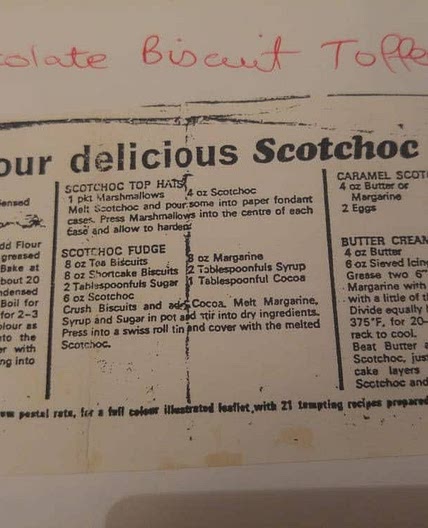 colate Biscuit Toffe
our delicious Scotchoc
ensed
dd Flour
greased
Bake at
bout 20
ndensed
Boil for
for 2-3
olour as
nto the
er with
ng into
SCOTCHOC TOP HATS
1 pkt Marshmallows 4 oz Scotchoc
Melt Scotchoc and pour some into paper fondant
cases. Press Marshmallows into the centre of each
case and allow to harden
SCOTCHOC FUDGE
8 oz Tea Biscuits 8 oz Margarine
8 oz Shortcake Biscuits 2 Tablespoonfuls Syrup
2 Tablespoonfuls Sugar 1 Tablespoonful Cocoa
6 oz Scotchoc
Crush Biscuits and add Cocoa. Melt Margarine,
Syrup and Sugar in pot and stir into dry ingredients.
Press into a swiss roll tin and cover with the melted
Scotchoc.
CARAMEL SCOT
4 oz Butter or
Margarine
2 Eggs
BUTTER CREAM
4 oz Butter
6 oz Sieved Icin
Grease two 6"
Margarine with
with a little of th
Divide equally
375°F, for 20-
rack to cool.
Beat Butter a
Scotchoc, jus
cake layers
Scotchoc and
postal rate, for a full colour illustrated leaflet, with 21 tempting recipes prepared